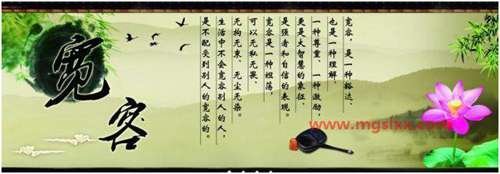 宽容
宽容，是一种豁达，
也是一种理解，
一种尊重，一种激励，
更是大智慧的象征，
是强者和自信的表现。
宽容是一种坦荡，
可以无私无畏、
无拘无束、无尘无染。
生活中不会宽容别人的人，
是不配受到别人的宽容的。